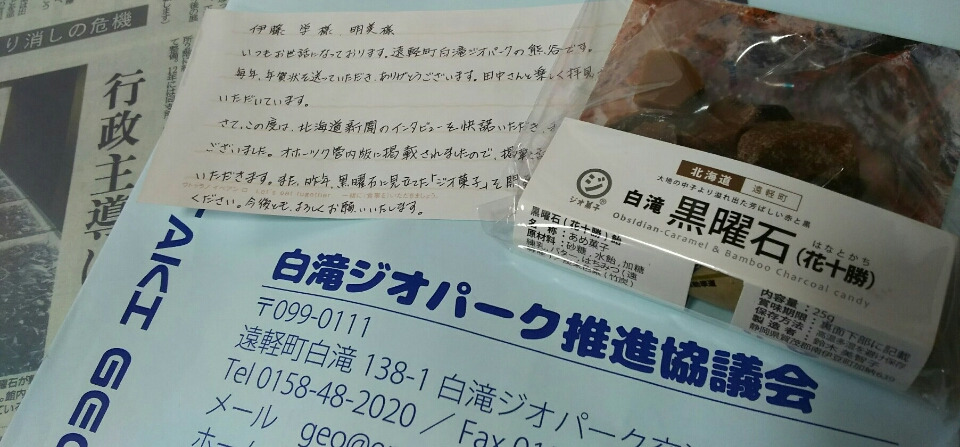 り消しの危機
行政主導
伊藤 学様 明美様
いつもお世話になっております。遠軽町白滝ジオパークの熊谷です。
毎年、年賀状を送っていただき、ありがとうございます。田中さんと楽しく拝見
いただいています。
さて、この度は、北海道新聞のインタビューを快諾いただき、
ございました。オホーツク管内版に掲載されましたので、
いただきます。また、昨年、黒曜石に見立てた「ジオ菓子」を
ください。今後とも、よろしくお願いいたします。
ジオ菓子®
北海道 遠軽町
大地の中子より溢れ出た芳ばしい赤と黒
白滝 黒曜石(花十勝)
はなとかち
Obsidian-Caramel & Bamboo Charcoal candy
黒曜石(花十勝)飴
名称:あめ菓子
原材料:砂糖、水飴、加糖
練乳、バター、はちみつ(遠
(竹炭)
内容量:25g
賞味期限:裏面下部に記載
保存方法:
製造者:鈴木美智子
AKI GEO
白滝ジオパーク推進協議会
〒099-0111
遠軽町白滝 138-1 白滝ジオパーク
Tel 0158-48-2020 / Fax 01
メール geo@
ホーム